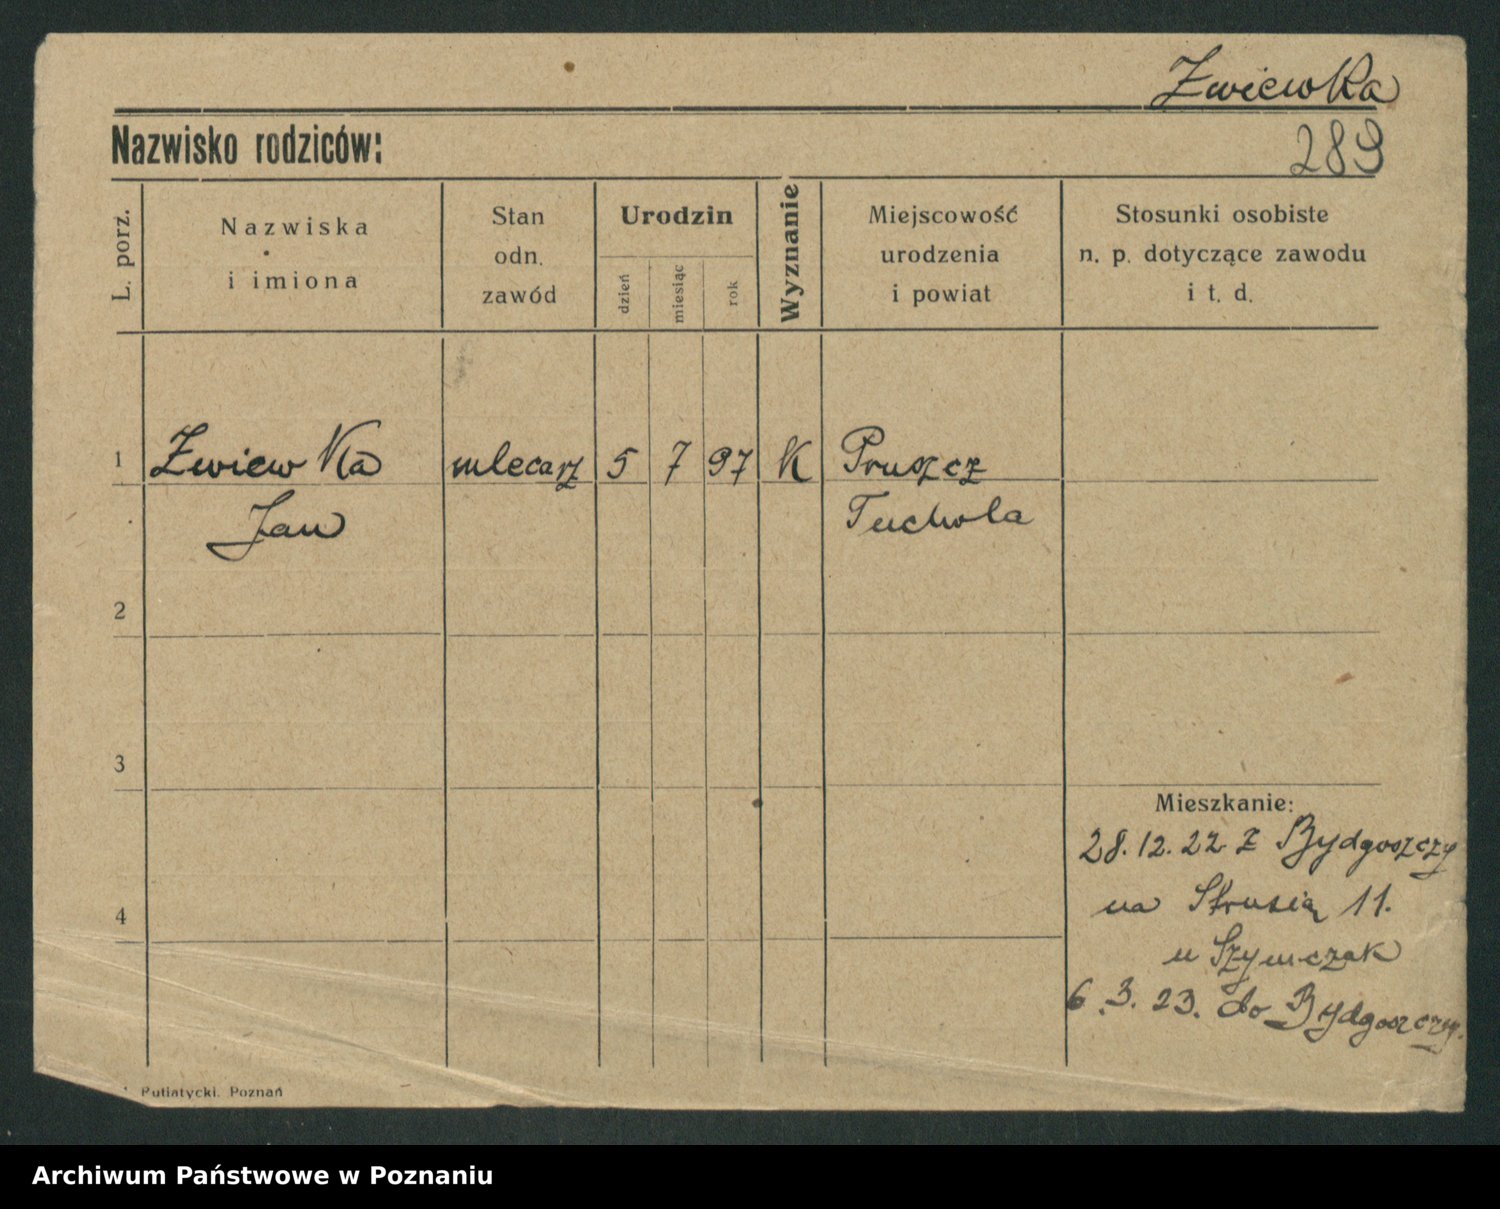 Zwiewka
Nazwisko rodziców:
289
L. porz.
Nazwiska
i imiona
Stan
odn.
zawód
Urodzin
dzień
miesiąc
rok
Wyznanie
Miejscowość
urodzenia
i powiat
Stosunki osobiste
n. p. dotyczące zawodu
i t. d.
1 Zwiewka mlecarz 5 7 97 K Pruszcz
Jan Tuchola
2
3
Mieszkanie:
28.12.22 z Bydgoszczy
4
na Strusią 11.
u Szymczak
6.3.23. do Bydgoszczy.
Putiatycki. Poznań
Archiwum Państwowe w Poznaniu